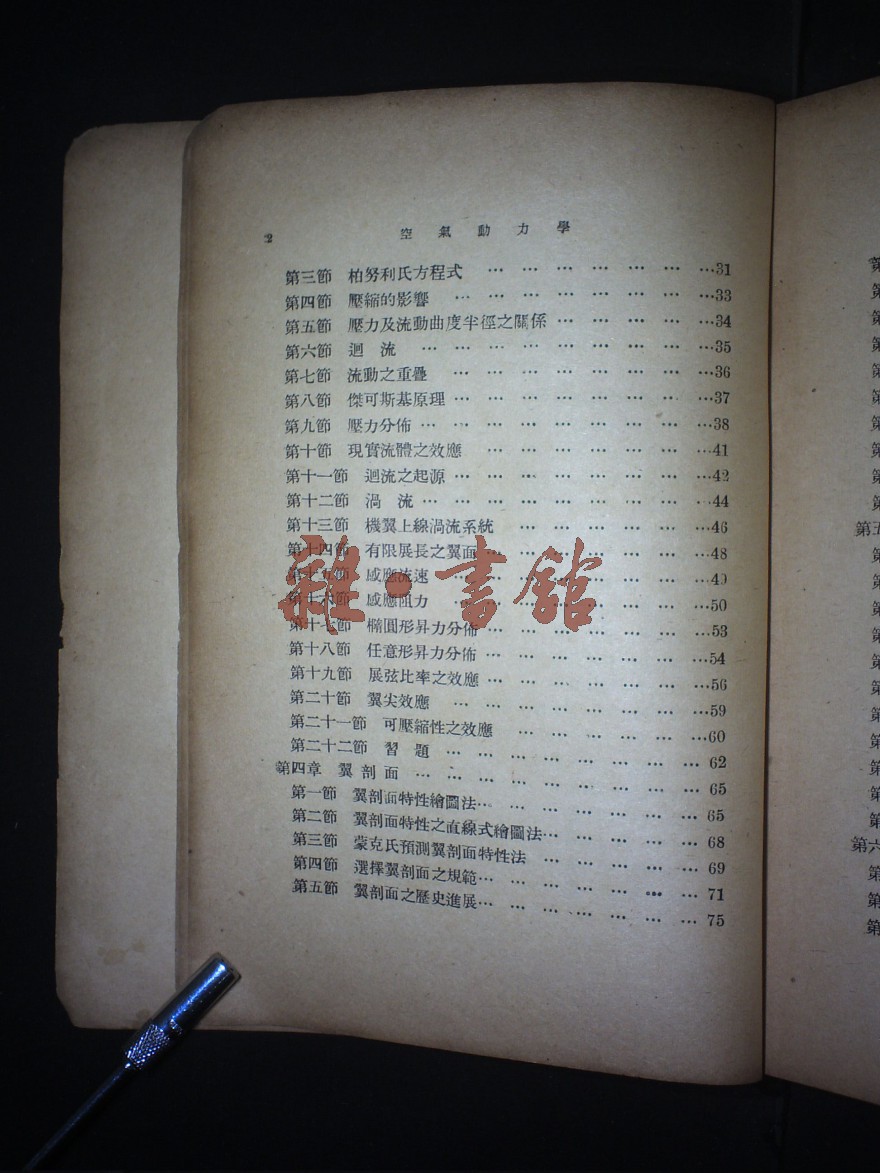 2 空氣動力學
第三節 柏努利氏方程式 … … … … … … …31
第四節 壓縮的影響 … … … … … … … …33
第五節 壓力及流動曲度半徑之關係 … … … … …34
第六節 迴流 … … … … … … … … …35
第七節 流動之重疊 … … … … … … … …36
第八節 傑可斯基原理 … … … … … … … …37
第九節 壓力分佈 … … … … … … … … …38
第十節 現實流體之效應 … … … … … … …41
第十一節 迴流之起源 … … … … … … … …42
第十二節 渦流 … … … … … … … … …44
第十三節 機翼上線渦流系統 … … … … … …46
第十四節 有限展長之翼面 … … … … … … …48
第十五節 感應流速 … … … … … … … …49
第十六節 感應阻力 … … … … … … … …50
第十七節 橢圓形昇力分佈 … … … … … … …53
第十八節 任意形昇力分佈 … … … … … … …54
第十九節 展弦比率之效應 … … … … … … …56
第二十節 翼尖效應 … … … … … … … …59
第二十一節 可壓縮性之效應 … … … … … …60
第二十二節 習題 … … … … … … … … 62
第四章 翼剖面 … … … … … … … … … 65
第一節 翼剖面特性繪圖法… … … … … … … 65
第二節 翼剖面特性之直線式繪圖法… … … … … 68
第三節 蒙克氏預測翼剖面特性法 … … … … … 69
第四節 選擇翼剖面之規範… … … … … … … 71
第五節 翼剖面之歷史進展… … … … … … … 75
雜·書館
第五
第六